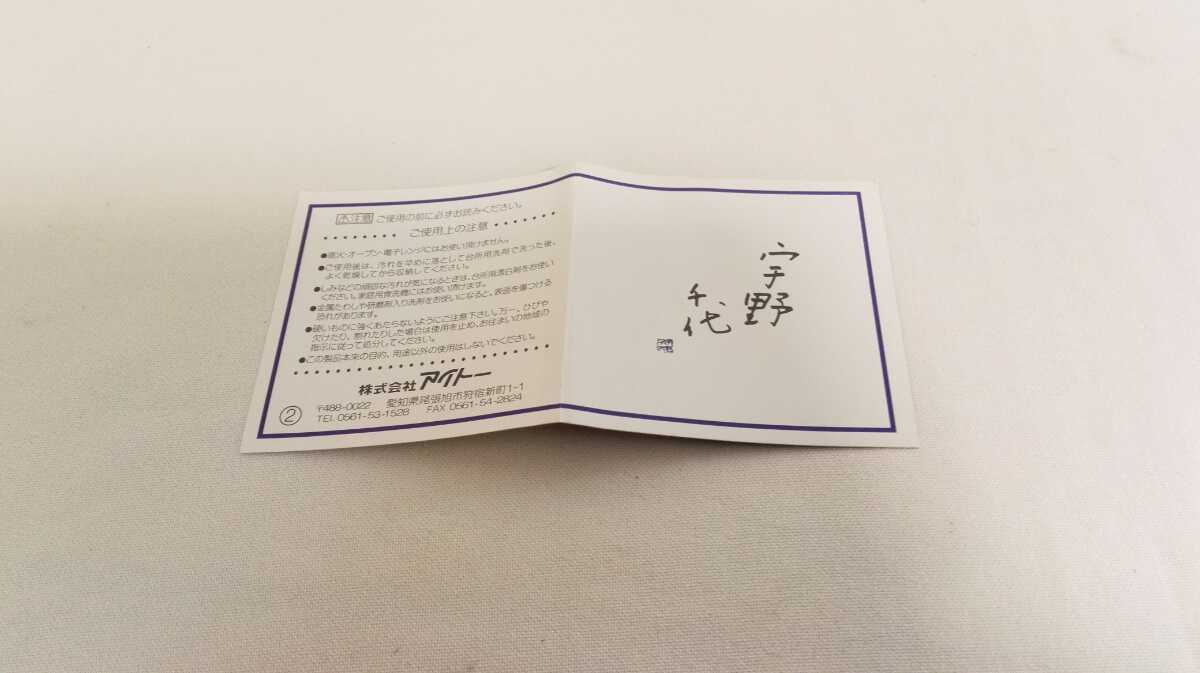 不注意 ご使用の前に必ずお読みください。
ご使用上の注意
●直火・オーブン・電子レンジにはお使い頂けません。
●ご使用後は、汚れを早めに落として台所用洗剤で洗った後、
よく乾燥してから収納してください。
●しみなどの頑固な汚れが気になるときは、台所用漂白剤をお使い
ください。家庭用食洗機にはお使い頂けます。
●金属たわしや研磨剤入り洗剤をお使いになると、表面を傷つける
恐れがあります。
●硬いものに強くあたらないようにご注意下さい。万一、ひびや
欠けたり、割れたりした場合は使用を止め、お住まいの地域の
指示に従って処分してください。
●この製品本来の目的、用途以外の使用はしないでください。
株式会社 アイトー
② 〒488-0022 愛知県尾張旭市狩宿新町1-1
TEL 0561-53-1528 FAX 0561-54-2824
宇野
千代